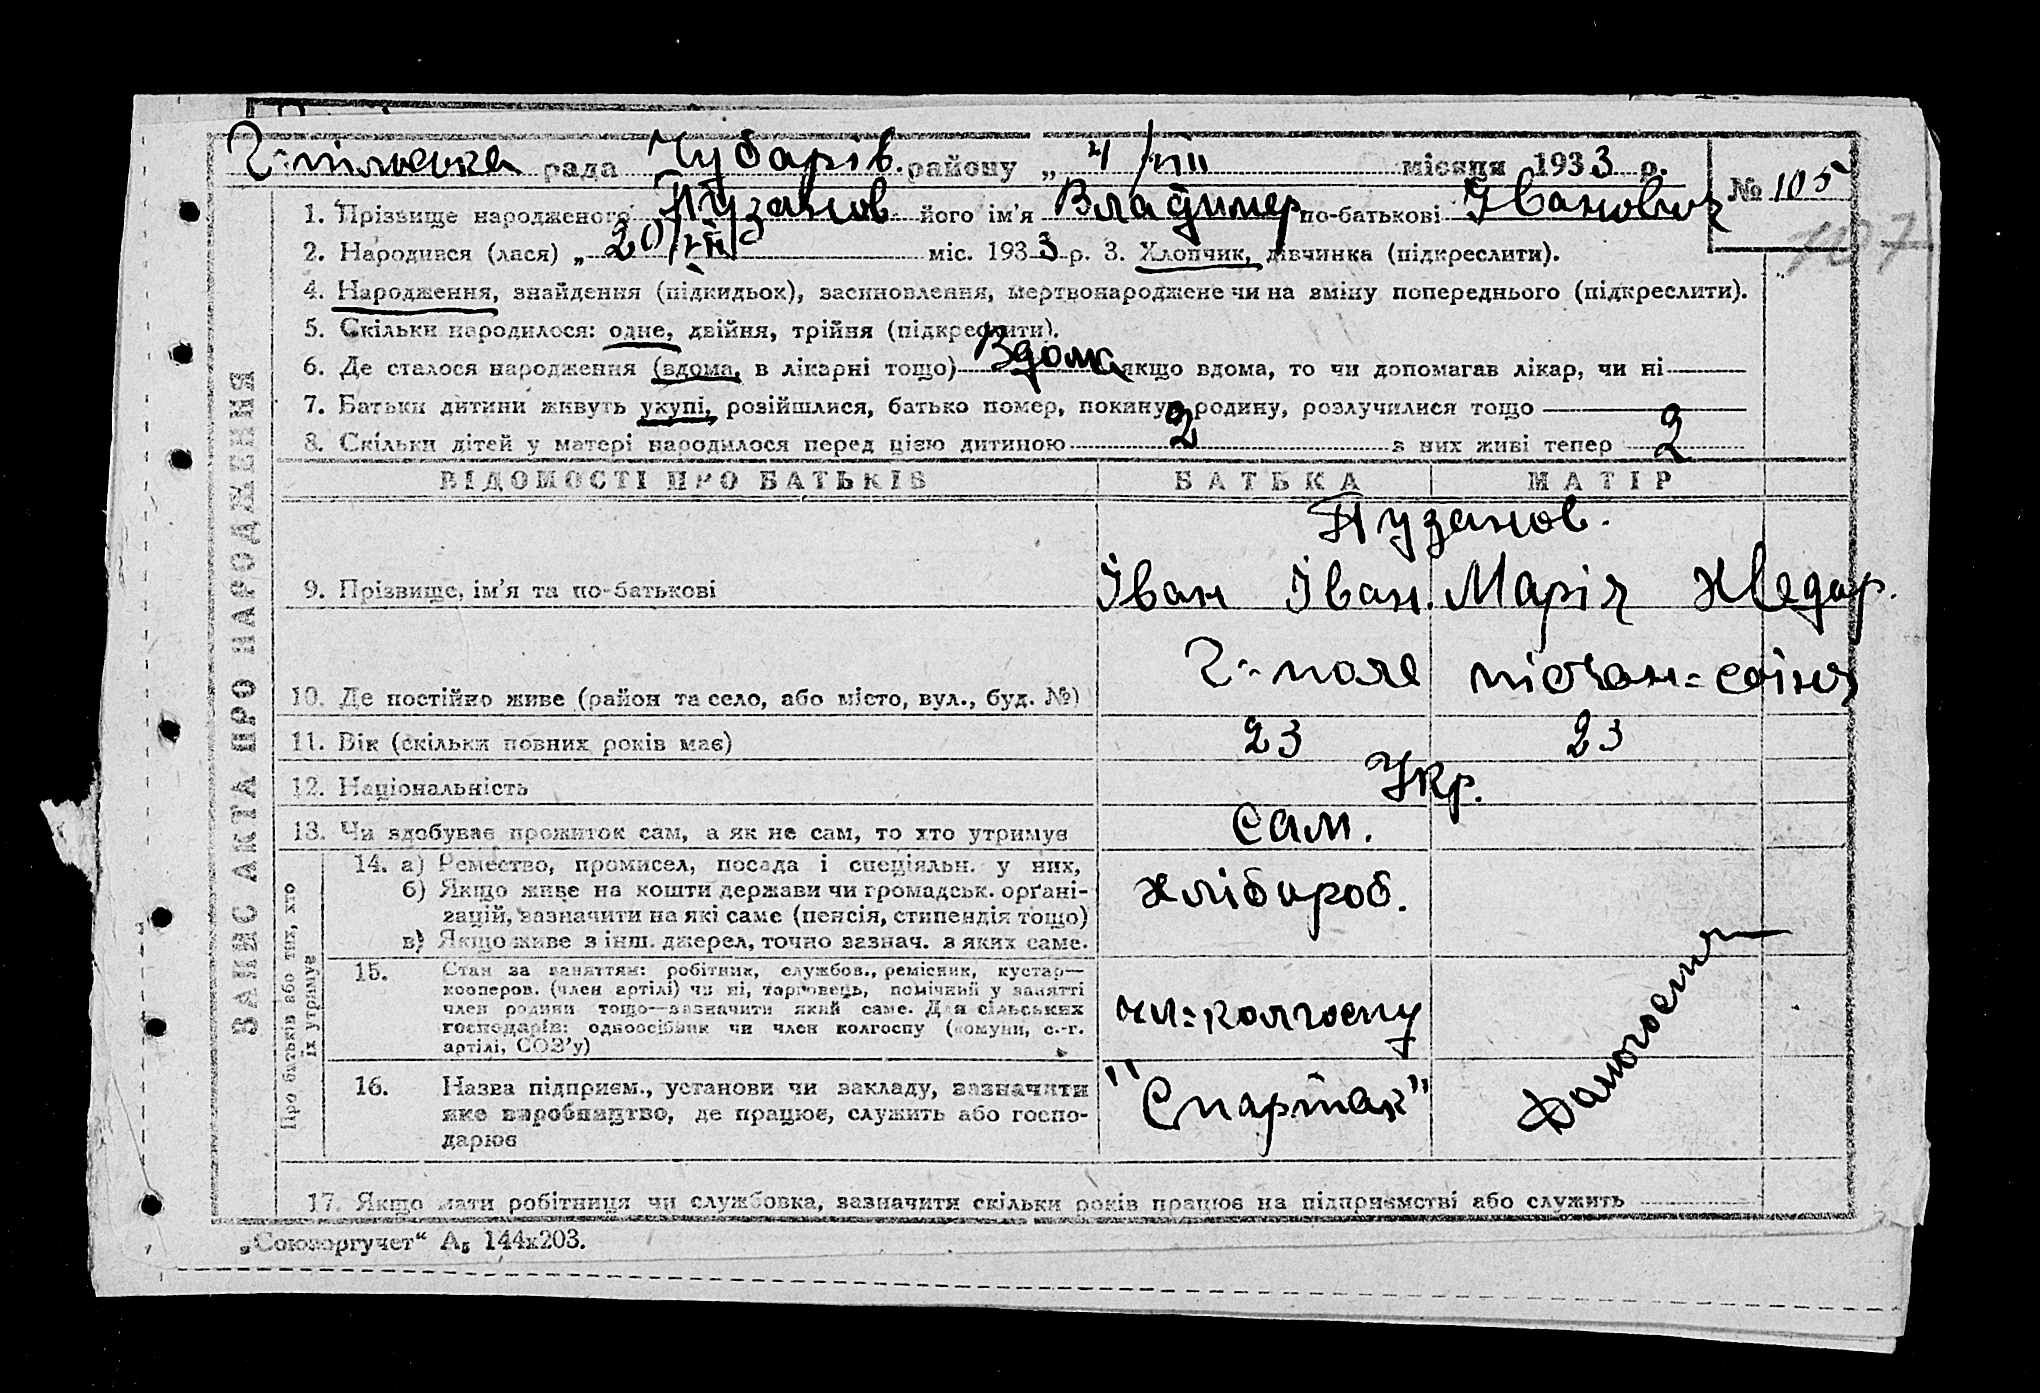 рада Чубарів. району „ 4/VIII місяця 1933 р.
№ 105
107
1. Прізвище народженого Пузанов його ім'я Владимер по-батькові Іванович
2. Народився (лася) „ 20/VII міс. 1933 р. 3. Хлопчик, дівчинка (підкреслити).
4. Народження, знайдення (підкидьок), засиновлення, мертвонароджене чи на зміну попереднього (підкреслити).
5. Скільки народилося: одне, двійня, трійня (підкреслити).
6. Де сталося народження (вдома, в лікарні тощо) Вдома якщо вдома, то чи допомагав лікар, чи ні
7. Батьки дитини живуть укупі, розійшлися, батько помер, покинув родину, розлучилися тощо
8. Скільки дітей у матері народилося перед цією дитиною 2 з них живі тепер 2
ЗАПИС АКТА ПРО НАРОДЖЕННЯ
ВІДОМОСТІ ПРО БАТЬКІВ БАТЬКА МАТІР
Пузанов.
9. Прізвище, ім'я та по-батькові Іван Іван. Марія Хведор.
10. Де постійно живе (район та село, або місто, вул., буд. №) Г: поле
11. Вік (скільки повних років має) 23 23
12. Національність Укр.
13. Чи здобуває прожиток сам, а як не сам, то хто утримує сам.
Про батьків або тих, хто
їх утримує
14. а) Ремество, промисел, посада і спеціяльн. у них,
б) Якщо живе на кошти держави чи громадськ. орґані-
зацій, зазначити на які саме (пенсія, стипендія тощо)
в) Якщо живе з інш. джерел, точно зазнач. з яких саме.
хлібороб.
15. Стан за заняттям: робітник, службов., ремісник, кустар—
кооперов. (член артілі) чи ні, торговець, помічний у занятті
член родини тощо—зазначити який саме. Для сільських
господарів: одноосібник чи член колгоспу (комуни, с.-г.
артілі, СОЗ'у)
чл: колгоспу
16. Назва підприєм., установи чи закладу, зазначити
яке виробництво, де працює, служить або госпо-
дарює
"Спартак"
17. Якщо мати робітниця чи службовка, зазначити скільки років працює на підприємстві або служить
„Союзоргучет“ А₅ 144х203.